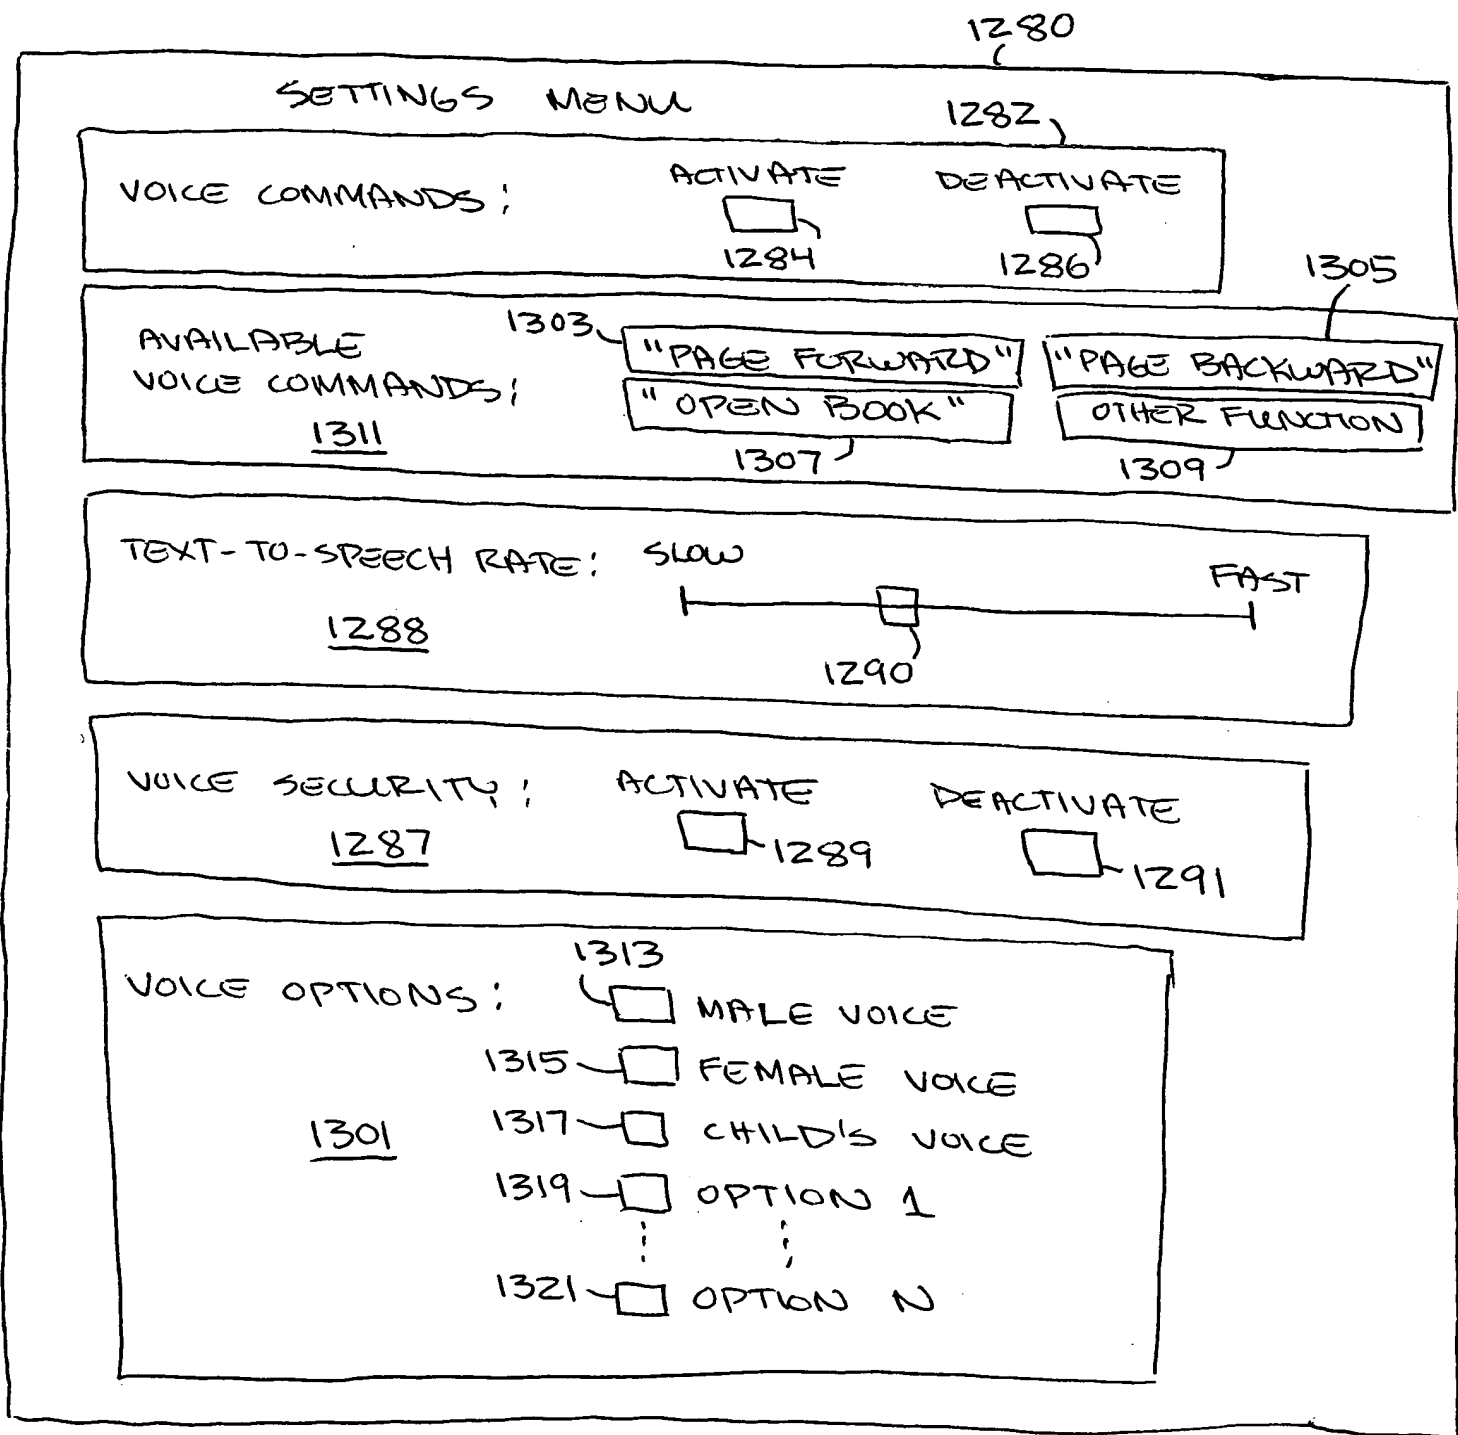 1280
SETTINGS MENU
1282
VOICE COMMANDS: ACTIVATE DEACTIVATE
1284 1286
1305
AVAILABLE
VOICE COMMANDS:
1311
1303 "PAGE FORWARD" "PAGE BACKWARD"
"OPEN BOOK" OTHER FUNCTION
1307 1309
TEXT-TO-SPEECH RATE: SLOW FAST
1288
1290
VOICE SECURITY: ACTIVATE DEACTIVATE
1287 1289 1291
1313
VOICE OPTIONS: MALE VOICE
1315 FEMALE VOICE
1301
1317 CHILD'S VOICE
1319 OPTION 1
1321 OPTION N